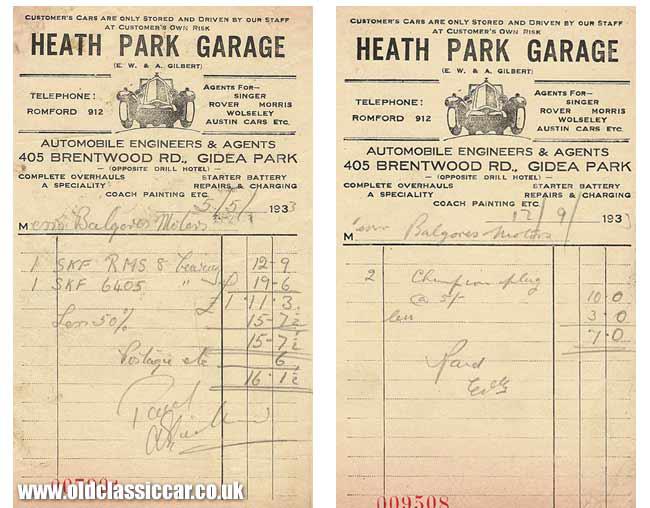 CUSTOMER'S CARS ARE ONLY STORED AND DRIVEN BY OUR STAFF
AT CUSTOMER'S OWN RISK
HEATH PARK GARAGE
(E. W. & A. GILBERT)
TELEPHONE:
ROMFORD 912
AGENTS FOR—
SINGER
ROVER MORRIS
WOLSELEY
AUSTIN CARS ETC.
AUTOMOBILE ENGINEERS & AGENTS
405 BRENTWOOD RD., GIDEA PARK
(OPPOSITE DRILL HOTEL)
COMPLETE OVERHAULS
A SPECIALITY
STARTER BATTERY
REPAIRS & CHARGING
COACH PAINTING ETC.
5/5/ 1933
Messrs Balgores Motors
1 SKF RMS 8 bearing 12-9
1 SKF 6405 " 19-6
£1.11.3
Less 50% 15-7½
15-7½
Postage etc 6
16.1½
Paid
www.oldclassiccar.co.uk
CUSTOMER'S CARS ARE ONLY STORED AND DRIVEN BY OUR STAFF
AT CUSTOMER'S OWN RISK
HEATH PARK GARAGE
(E. W. & A. GILBERT)
TELEPHONE:
ROMFORD 912
AGENTS FOR—
SINGER
ROVER MORRIS
WOLSELEY
AUSTIN CARS ETC.
AUTOMOBILE ENGINEERS & AGENTS
405 BRENTWOOD RD., GIDEA PARK
(OPPOSITE DRILL HOTEL)
COMPLETE OVERHAULS
A SPECIALITY
STARTER BATTERY
REPAIRS & CHARGING
COACH PAINTING ETC.
12/9/ 1933
Messrs Balgores Motors
2 Champion plug
@ 5/- 10.0
less 3.0
7.0
Paid
009508